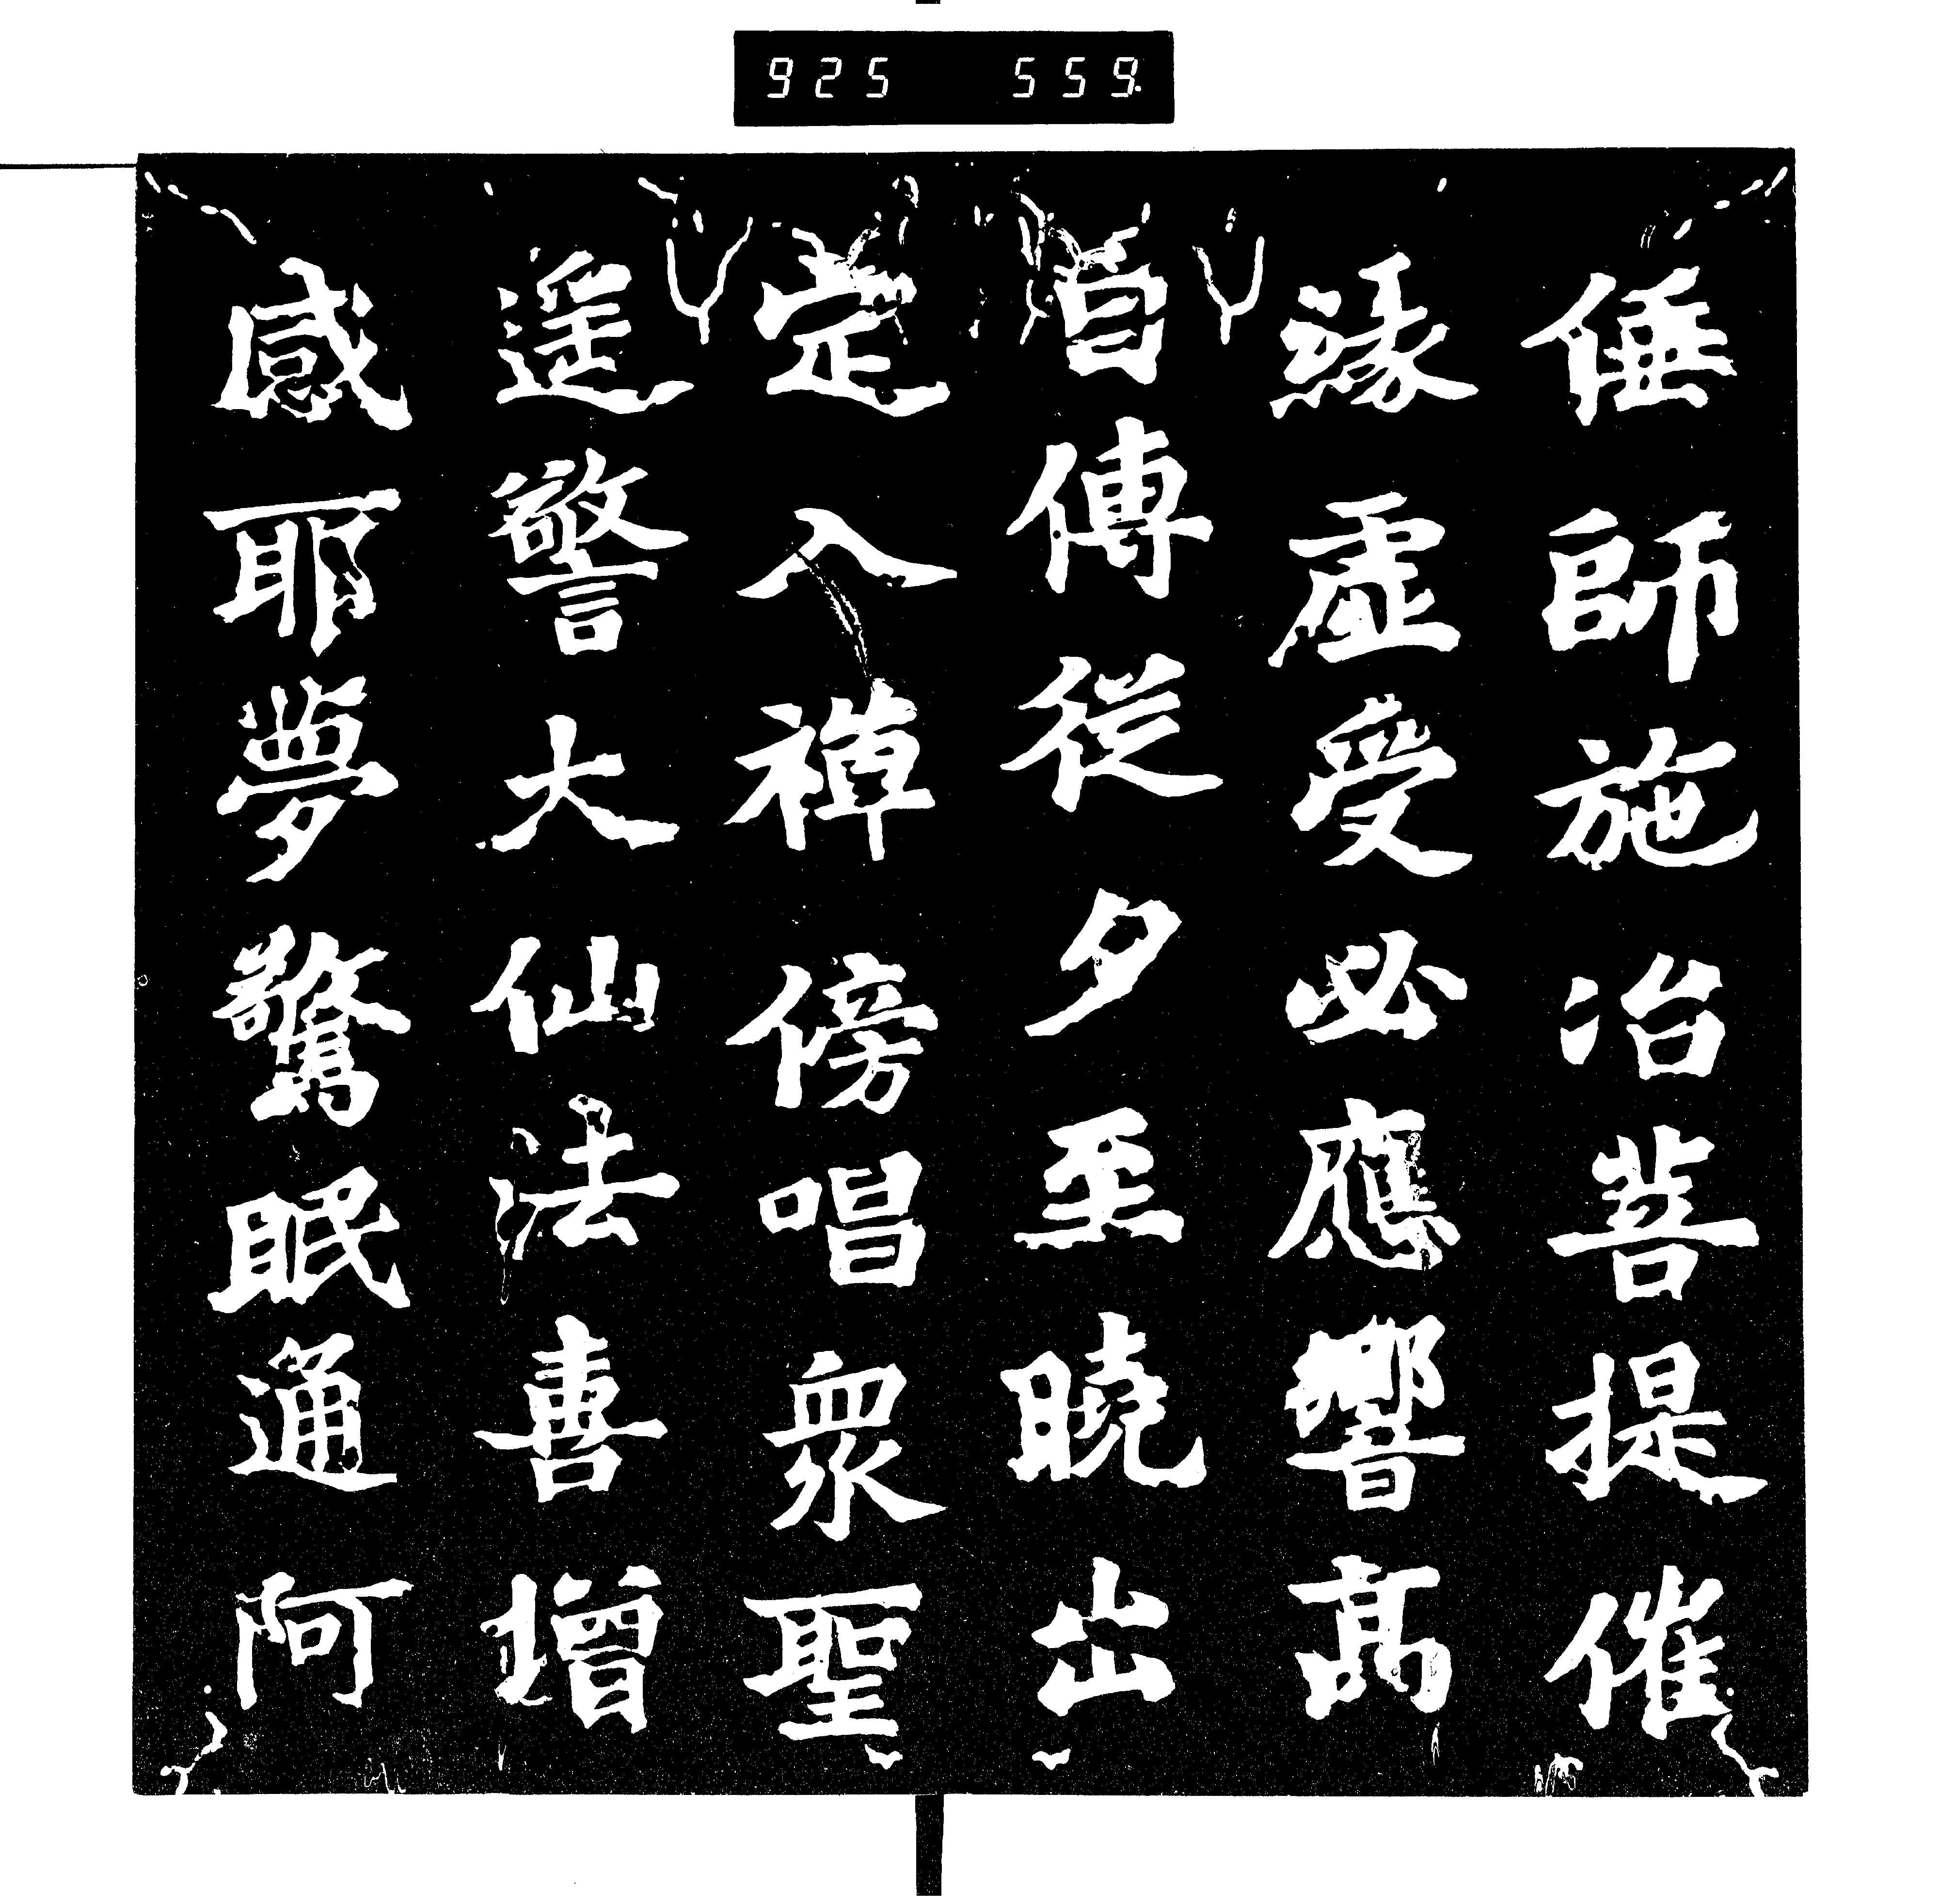 925 559.
倕師施冶菩提催
緣虛受必應響高
昌傳從夕至曉出
定入禪傍唱衆聖
遥警大仙法善增
感耶夢驚眠通阿